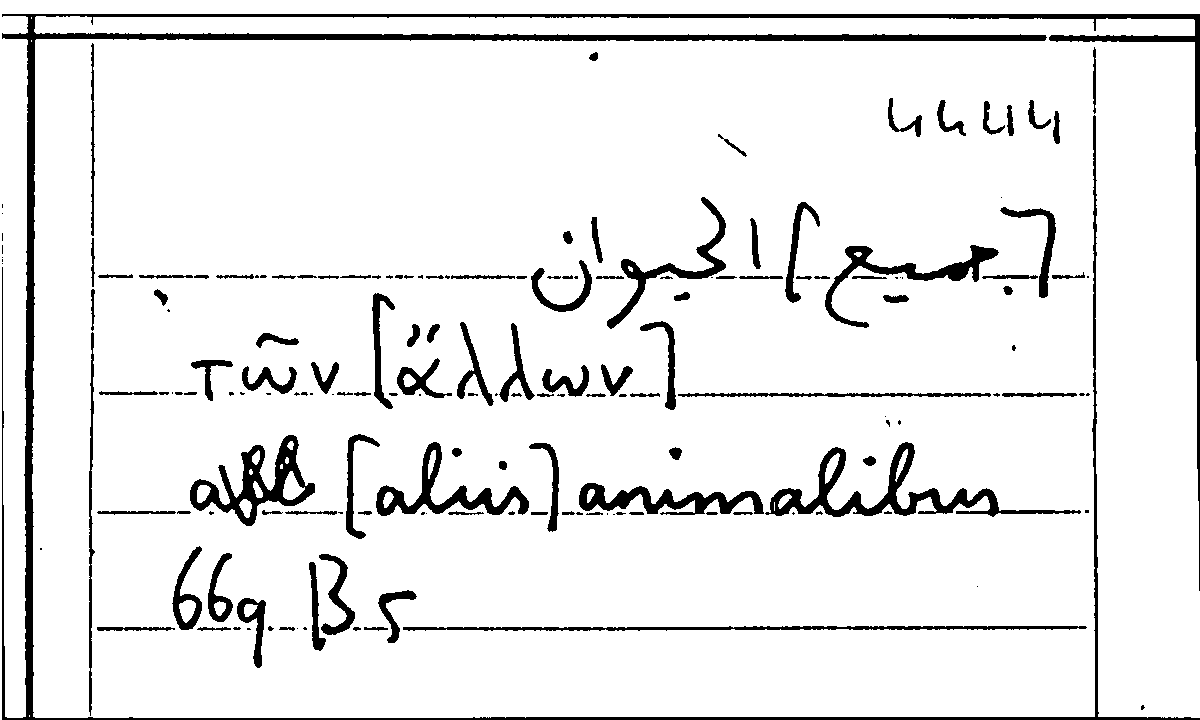 4444
[جميع] الحيوان
τῶν [ἄλλων]
[aliis] animalibus
669 B 5